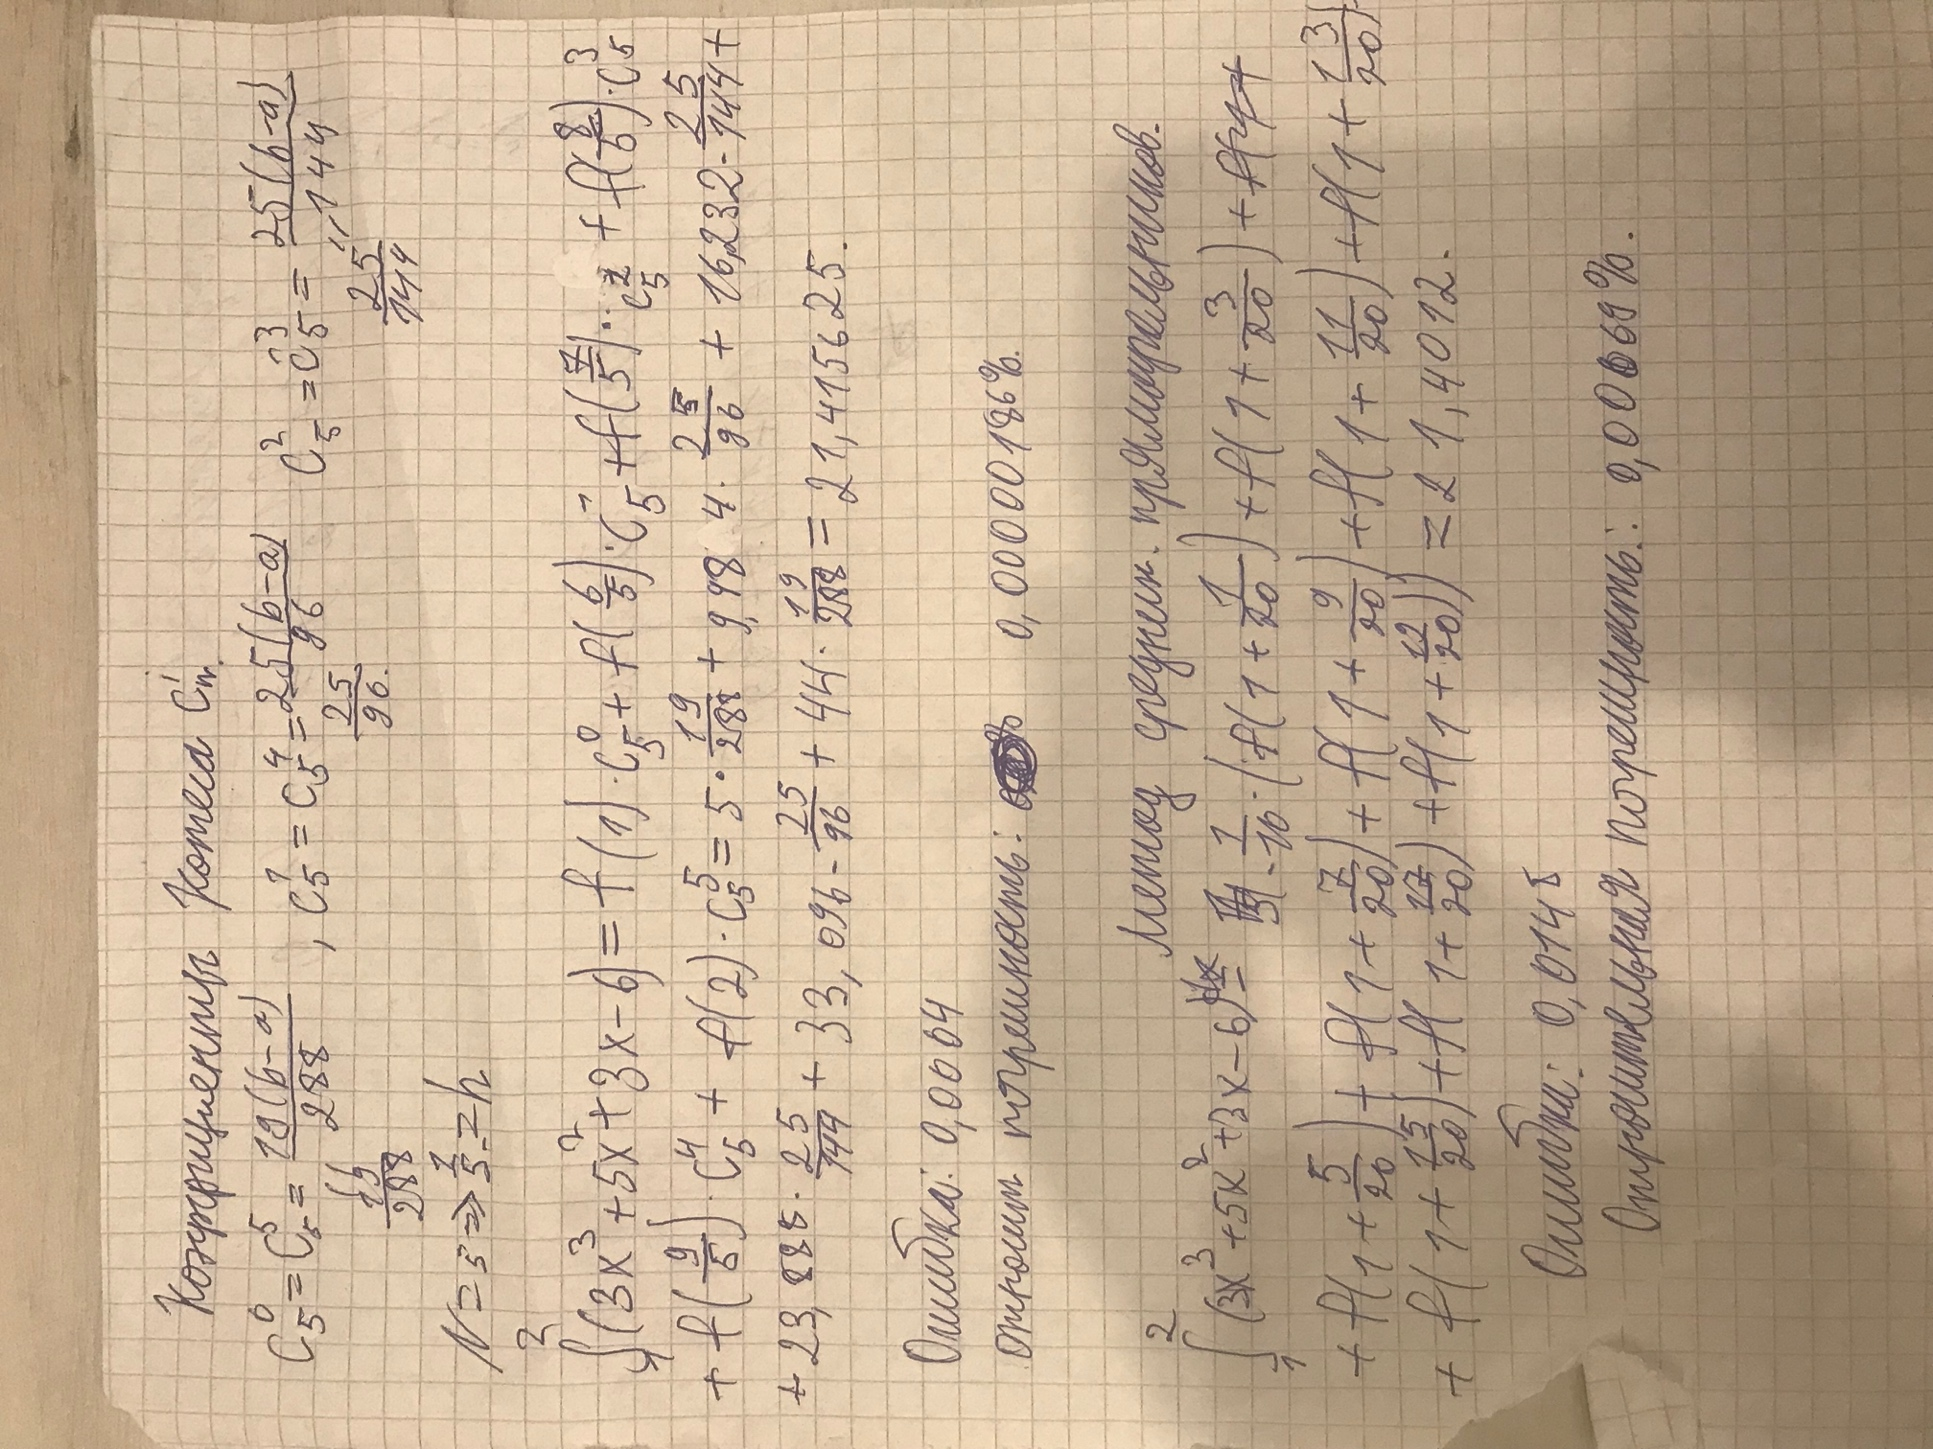 Коэффициенты Котеса Cⁱₘ.
C₅⁰ = C₅⁵ = 19(b-a)/288 , C₅¹ = C₅⁴ = 25(b-a)/96 C₅² = C₅³ = 25(b-a)/144
19/288 25/96. 25/144
N = 5 => 1/5 = h
∫₁² (3x³ + 5x² + 3x - 6) = f(1)·C₅⁰ + f(6/5)·C₅¹ + f(7/5)·C₅² + f(8/5)·C₅³
+ f(9/5)·C₅⁴ + f(2)·C₅⁵ = 5·19/288 + 9,984·25/96 + 16,232·25/144 +
+ 23,888·25/144 + 33,096·25/96 + 44·19/288 = 21,415625.
Ошибка: 0,0004
относит погрешность: 0,0000186%.
Метод средн. прямоугольников.
∫₁² (3x³ + 5x² + 3x - 6)dx = 1/10·(f(1 + 1/20) + f(1 + 3/20) +
+ f(1 + 5/20) + f(1 + 7/20) + f(1 + 9/20) + f(1 + 11/20) + f(1 + 13/20)
+ f(1 + 15/20) + f(1 + 17/20) + f(1 + 12/20)) = 21,4012.
Ошибка: 0,0148
Относительная погрешность: 0,00069%.